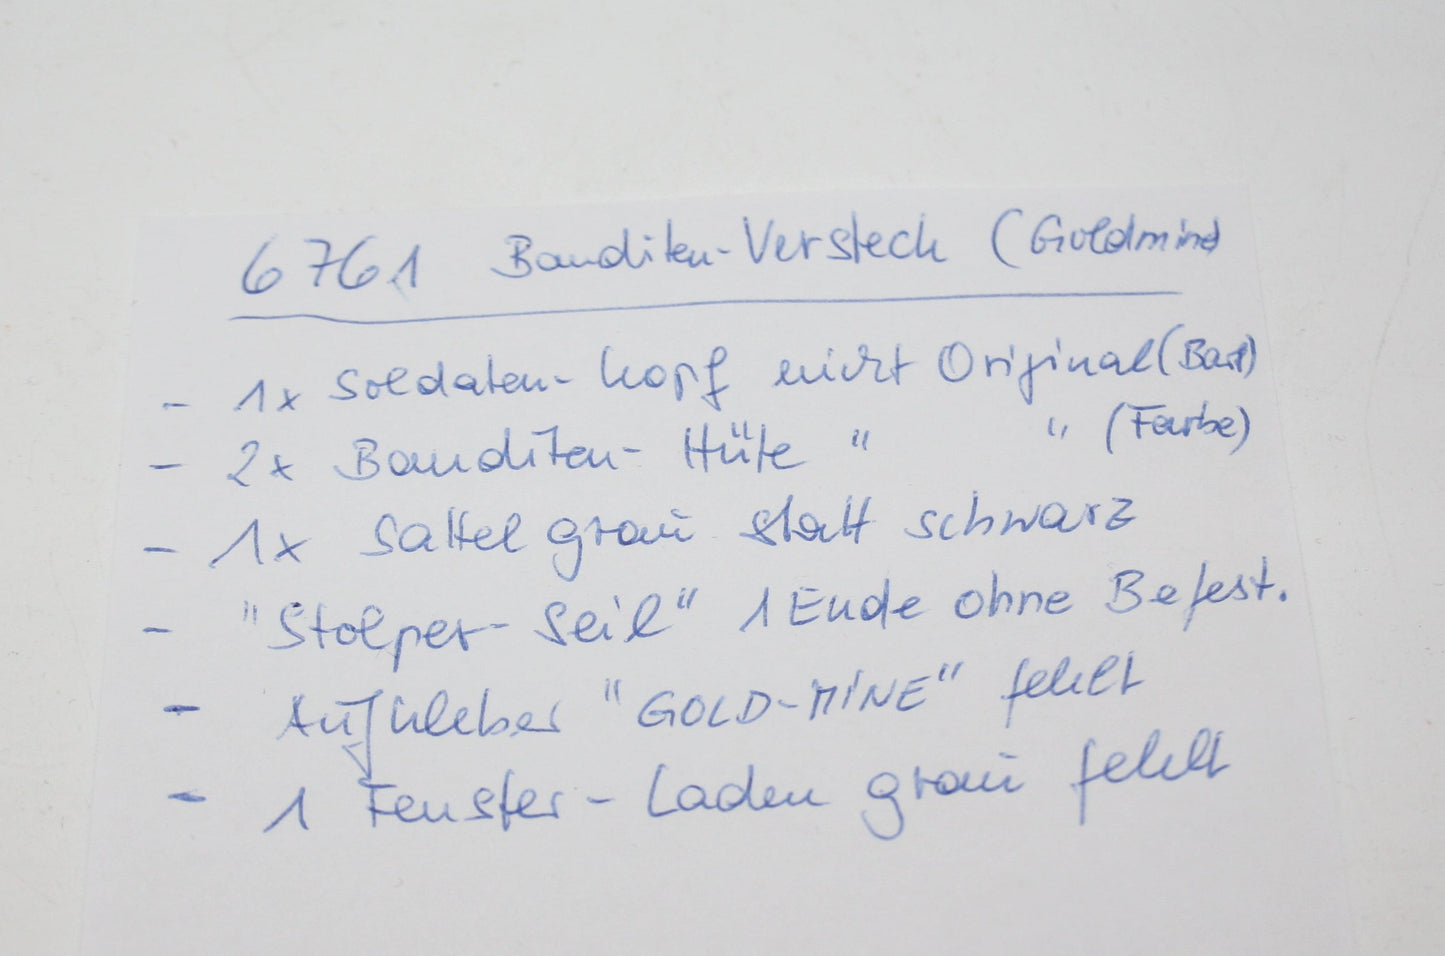 6761 Banditen-Versteck (Goldmine)
- 1x Soldaten-Kopf nicht Original (Bart)
- 2x Banditen-Hüte " " (Farbe)
- 1x Sattel grau statt schwarz
- "Stolper-Seil" 1 Ende ohne Befest.
- Aufkleber "GOLD-MINE" fehlt
- 1 Fenster-Laden grau fehlt